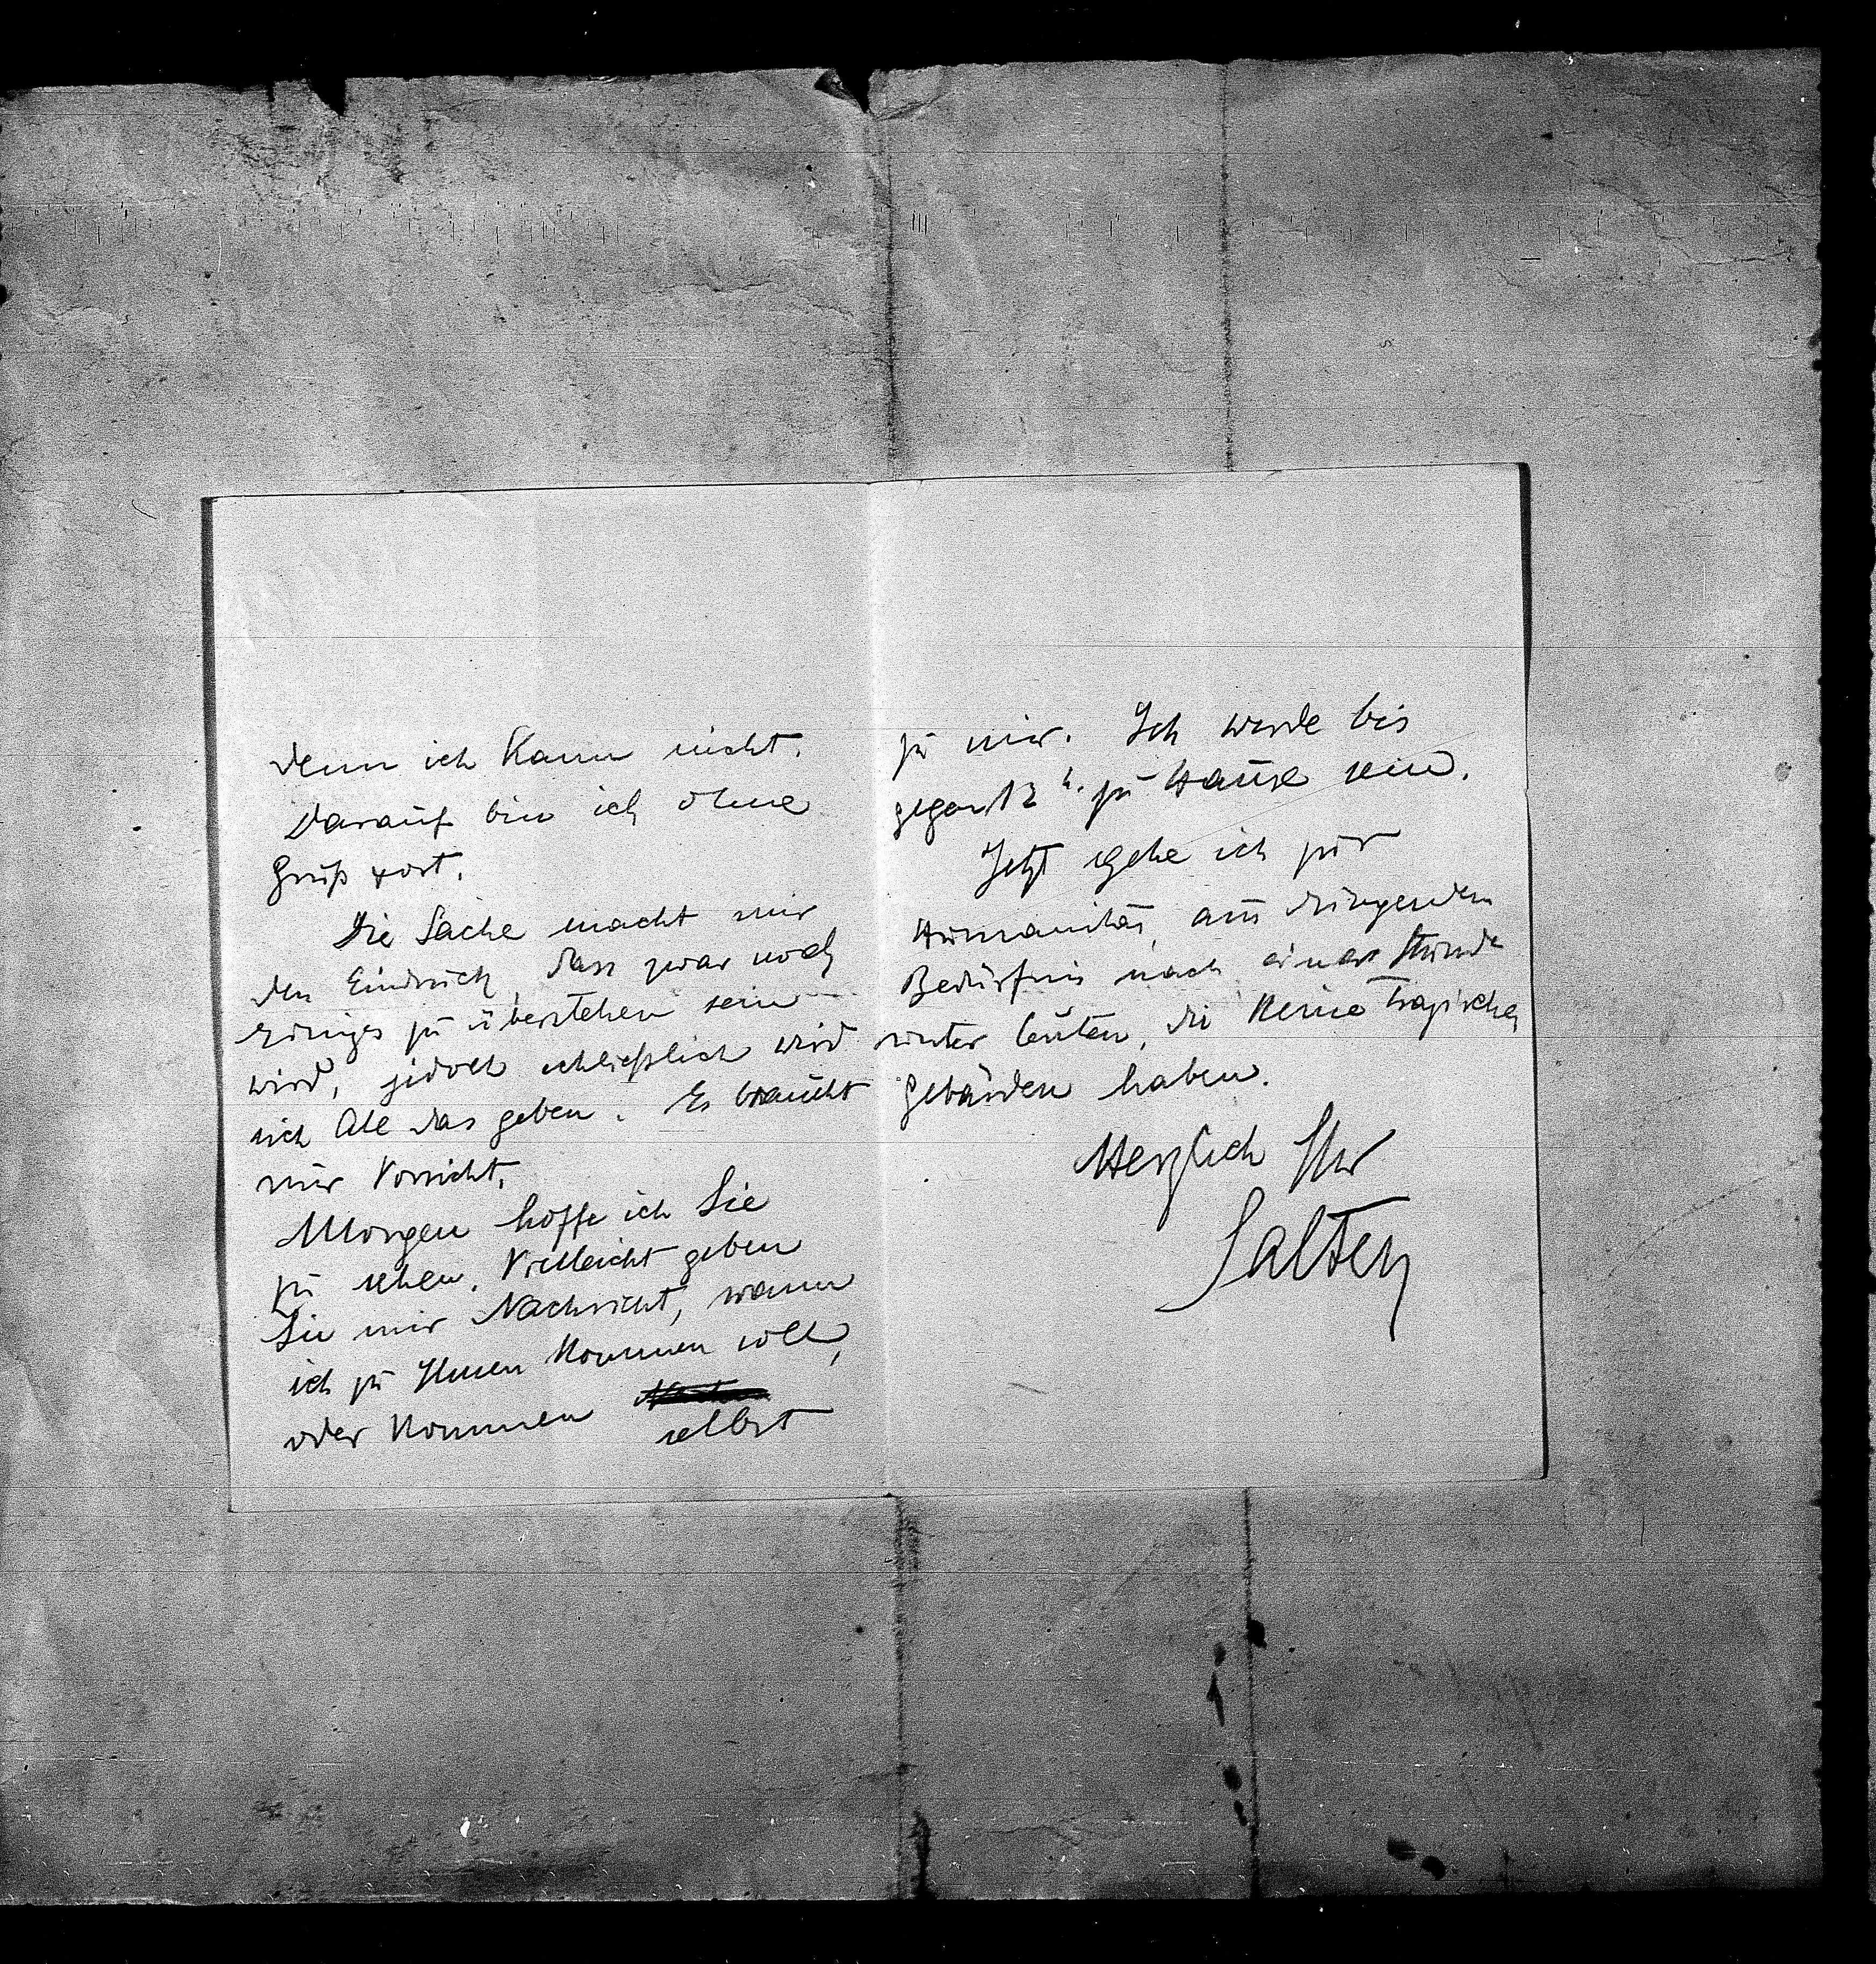 denn ich kann nicht.
Darauf bin ich ohne
Gruß fort.
Die Sache macht mir
den Eindruck, dass zwar noch
einiges zu überstehen sein
wird, jedoch schließlich wird
sich Alle das geben. Es braucht
nur Vorsicht.
Morgen hoffe ich Sie
zu sehen. Vielleicht geben
Sie mir Nachricht, wann
ich zu Ihnen kommen soll,
oder kommen
selbst
zu mir. Ich werde bis
gegen 12 h. zu Hause sein.
Jetzt gehe ich zur
Humanitas, aus dringendem
Bedürfnis nach einer Stunde
unter Leuten, die keine tragischen
Gebärden haben.
Herzlich Ihr
Salten